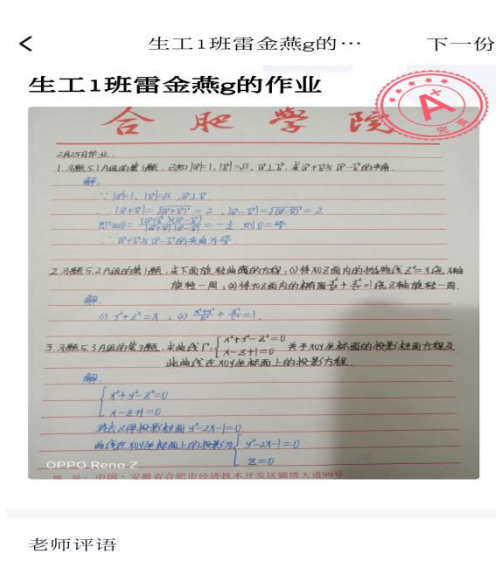 生工1班雷金燕g的… 下一份
生工1班雷金燕g的作业
A+
完美
合肥学院
2月25日作业:
1. 习题5.1A组的第 题, 已知|a|=1, |b|=√3, a⊥b, 求a+b与a-b的夹角.
解.
∵ |a|=1, |b|=√3, a⊥b
∴ |a+b|=√(a+b)²=2, |a-b|=√(a-b)²=2
∴ a+b与a-b的夹角为
2. 习题5.2A组的第 题, 求下面旋转曲面的方程, (1)将XOZ面内的抛物线Z²=X绕X轴
旋转一周, (2)将XOZ面内的椭圆 绕Z轴旋转一周.
解.
(1) y²+z²=x, (2)
3. 习题5.3A组的第 题, 求曲线Γ: { x²+y²-z²=0 关于XOY坐标面的投影柱面方程及
x-z+1=0
此曲线在XOY坐标面上的投影方程.
解.
{ x²+y²-z²=0
x-z+1=0
消去z得投影柱面 y²-2x-1=0
曲线在XOY坐标面上的投影为 { y²-2x-1=0
z=0
OPPO Reno Z
地 址: 中国·安徽省合肥市经济技术开发区锦绣大道99号
老师评语